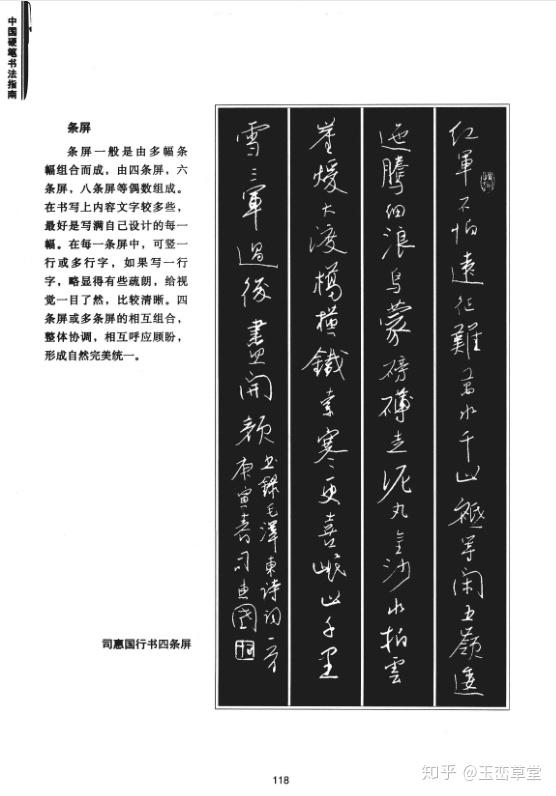 中国硬笔书法指南
条屏
条屏一般是由多幅条
幅组合而成，由四条屏，六
条屏，八条屏等偶数组成。
在书写上内容文字较多些，
最好是写满自己设计的每一
幅。在每一条屏中，可竖一
行或多行字，如果写一行
字，略显得有些疏朗，给视
觉一目了然，比较清晰。四
条屏或多条屏的相互组合，
整体协调，相互呼应顾盼，
形成自然完美统一。
紅軍不怕遠征難萬水千山祗等閑五嶺逶
迤騰細浪烏蒙磅礴走泥丸金沙水拍雲
崖煖大渡橋橫鐵索寒更喜岷山千里
雪三軍過後盡開顏
書錄毛澤東詩詞一首
庚寅春司惠國
司惠国行书四条屏
118
知乎 @玉峦草堂